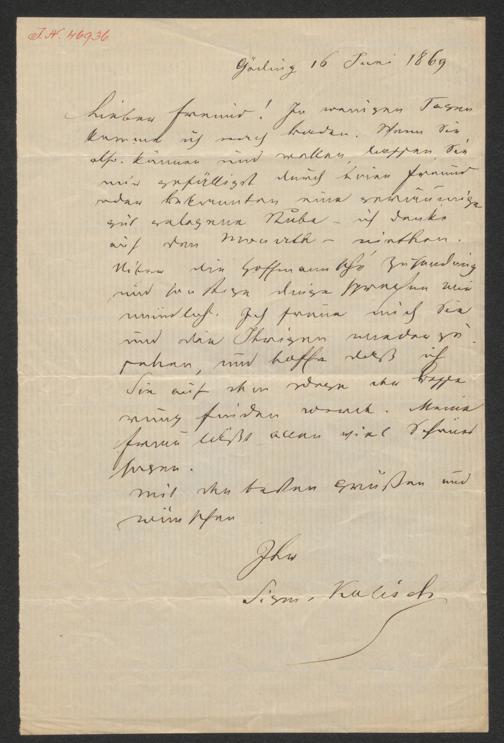 J.N. 46936
Göding 16 Juni 1869
Lieber Freund! In wenigen Tagen
komme ich nach Baden. Wenn Sie
also können und wollen, lassen Sie
mir gefälligst durch Ihren Freund
oder Bekannten eine geräumige
gut gelegene Stube – ich denke
auf den Monath – miethen.
Ueber die Hoffmann'sche Zusendung
und sonstige Dinge sprechen wir
mündlich. Ich freue mich Sie
und die Ihrigen wieder zu
sehen, und hoffe daß ich
Sie auf dem Wege der Besse
rung finden werde. Meine
Frau läßt allen viel Schönes
sagen.
Mit den besten Grüßen und
Wünschen
Ihr
Sigm. Kolisch